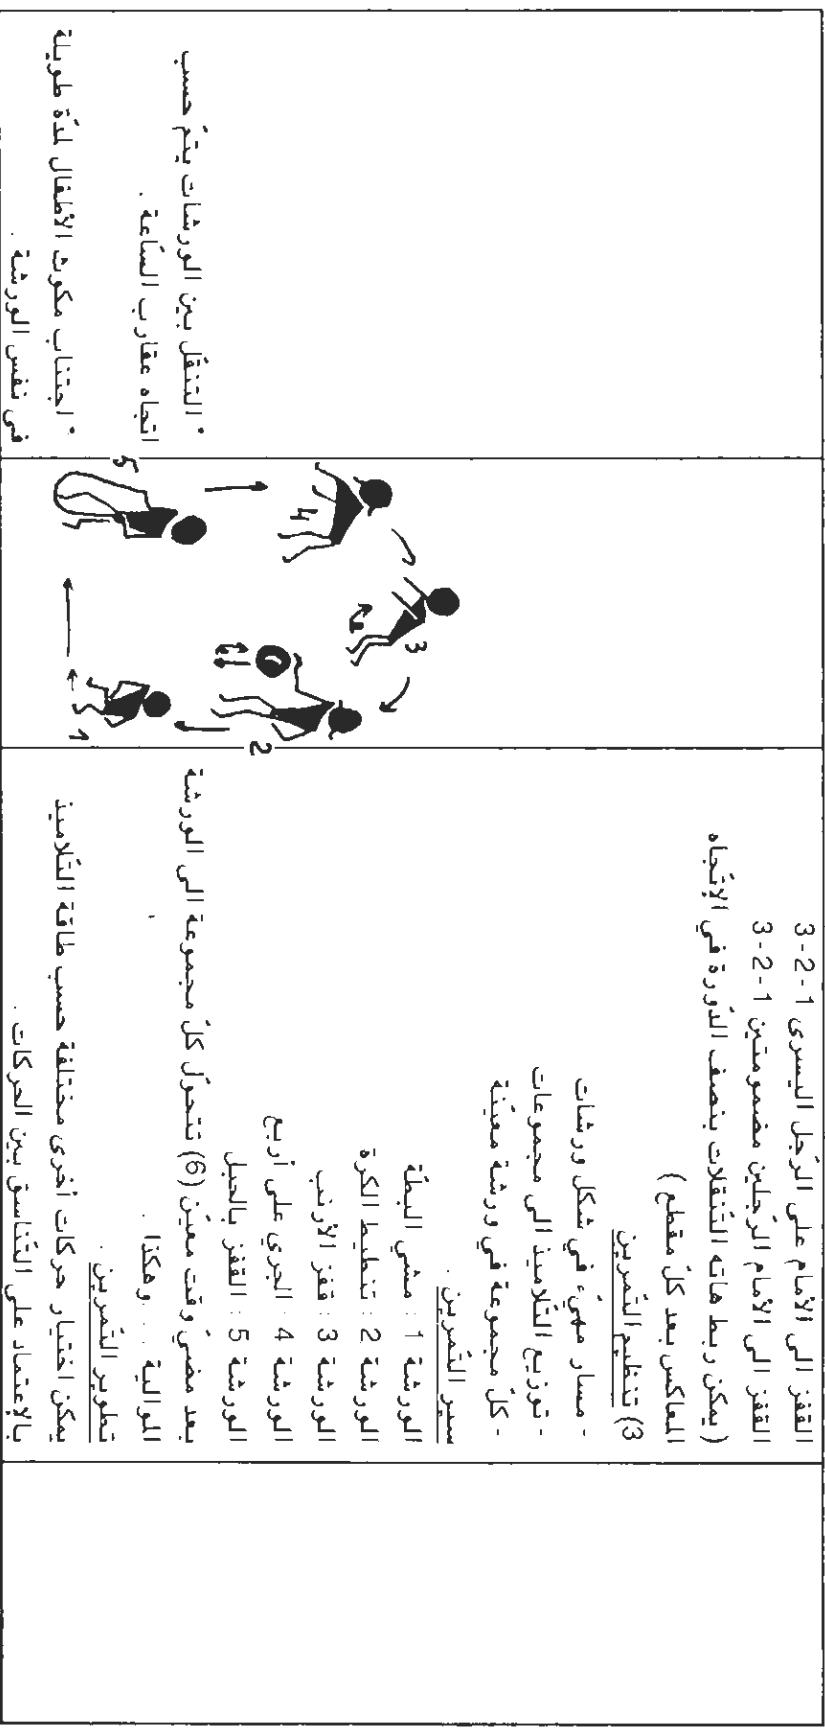 القفز الى الأمام على الرّجل اليسرى 1-2-3
القفز الى الأمام الرّجلين مضمومتين 1-2-3
( يمكن ربط هاته التّنقلات بنصف الدّورة في الإتّجاه
المعاكس بعد كلّ مقطع )
3) تنظيم التّمرين
- مسار مهيّء في شكل ورشات
- توزيع التّلاميذ الى مجموعات
- كلّ مجموعة في ورشة معيّنة
سير التّمرين .
الورشة 1 : مشي البطّة
الورشة 2 : تنطيط الكرة
الورشة 3 : قفز الأرنب
الورشة 4 : الجري على أربع
الورشة 5 : القفز بالحبل
بعد مضيّ وقت معيّن (6) تتحوّل كلّ مجموعة الى الورشة
الموالية ... وهكذا .
تطوير التّمرين .
يمكن اختيار حركات أخرى مختلفة حسب طاقة التّلاميذ
بالإعتماد على التّناسق بين الحركات .
3
4
2
5
1
* التنقّل بين الورشات يتمّ حسب
اتجاه عقارب السّاعة .
* اجتناب مكوث الأطفال لمدّة طويلة
في نفس الورشة .